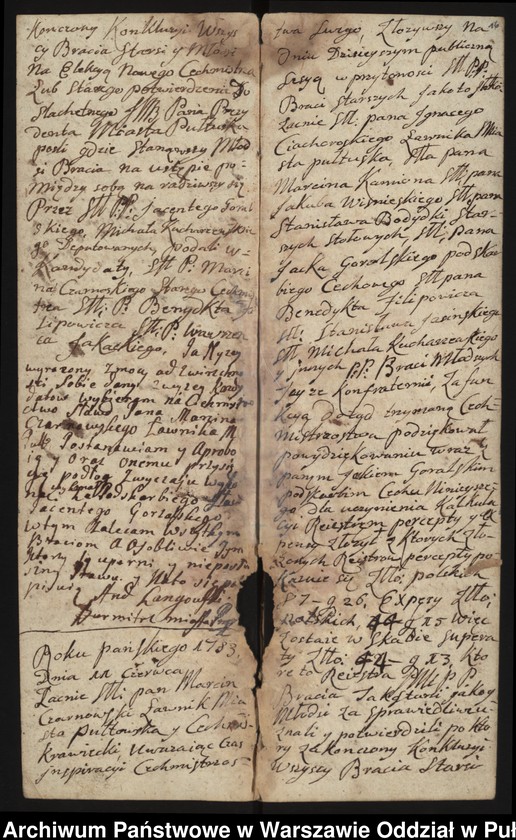 kończoney Konkluzyi Wszys
cy Bracia Starsi y Młodsi
Na Elekcyą Nowego Cechmistrza
Lub Starego potwierdzenie do
Szlachetnego Pana Prezy
denta Miasta Pułtuska
poszli gdzie Stanąwszy Młod
si Bracia na ustępie po
Między sobą na radziwszy się
Przez Jacentego Goral
skiego, Michała Kucharzewskie
go Deputowanych podali
Kandydaty, P: Marci
na Czarnoskiego Starego Cechmis
trza P: Benedykta Fi
lipowicza P: Wawrzen
ca Jakackiego, Ja Wyzey
wyrażony z mocy od zwierzchno
ści Sobie daney z wyżey kandy
datow wybieram na Cechmistrz
ostwo Sław: Pana Marcina
Czarnowskiego Ławnika M
Puł: Postanawiam y Aprobu
ię y oraz onemu przysię
podług Zwyczaju wyko
nać Podskarbiego Sław
Jacentego Goralskiego
w tym Zalecam Wszystkim
Braciom A osobliwie tym
ktorzy są uporni y nieposłu
szni
And Langowski
Burmistrz miasta Puł
Roku pańskiego 1783.
Dnia 11 Czerwca
Zacnie pan Marcin
Czarnowski Ławnik Mia
sta Pułtowska y Cechmis
Krawiecki Uwazaiąc Czas
Inspiracyi Cechmistrzos-
twa Swego, Złożywszy Na
Dniu Dzisieyszym publiczną
Sesyą w przytomości
Braci Starszych Jako to
Zacnie pana Ignacego
Ciachorskiego Ławnika Mia
sta pułtuska, pana
Marcina Kaniona pana
Jakuba Wiśnieskiego pana
Stanisława Bodydki Star-
szych Stołowych, pana
Jacka Goralskiego podskar
biego Cechowego pana
Benedykta Filipowicza
Stanisława Jasińskiego
Michała Kucharzeskiego
y innych P.P. Braci Młodszych
Teyże Konfraternii, Za fun
kcyą dotąd trzymaną Cech
Mistrzostwa podziękował
po wydziękowaniu wraz z
panym Jackiem Goralskim
podskarbim Cechu Ninieysze
go, dla uczynienia Kalkula
cyi Reiestrem percepty y Ex
pensy Złożył z ktorych Zło
żonych Reiestrow percepty po
kazuie się Złło: polskich
87 - g 26, Expęsy Złło:
polskich, 44 g 15 więc
Zostaie w Skarbie Supera
ty Złło: 42 - g 13, kto
re to Reiestra P.P.
Bracia Jak Starsi jako y
Młodsi Za Sprawiedliwie u
Znali y potwierdzili po kto
ry zakonczony Konkluzyi
Wszyscy Bracia Starsi
Archiwum Państwowe w Warszawie Oddział w Puł